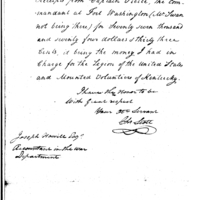 receipt from Captain Pierce, the Com-
mandant at Fort Washington, (Mr. Swan
not being there) for Seventy seven thousand
and seventy four dollars & thirty three
Cents, is being the money I had in
Charge for the Legion of the United States
and Mounted Volunteers of Kentucky.
I have the Honor to be
With great respect
Your
Joseph Howell Esqr
Accountant in the War
Department